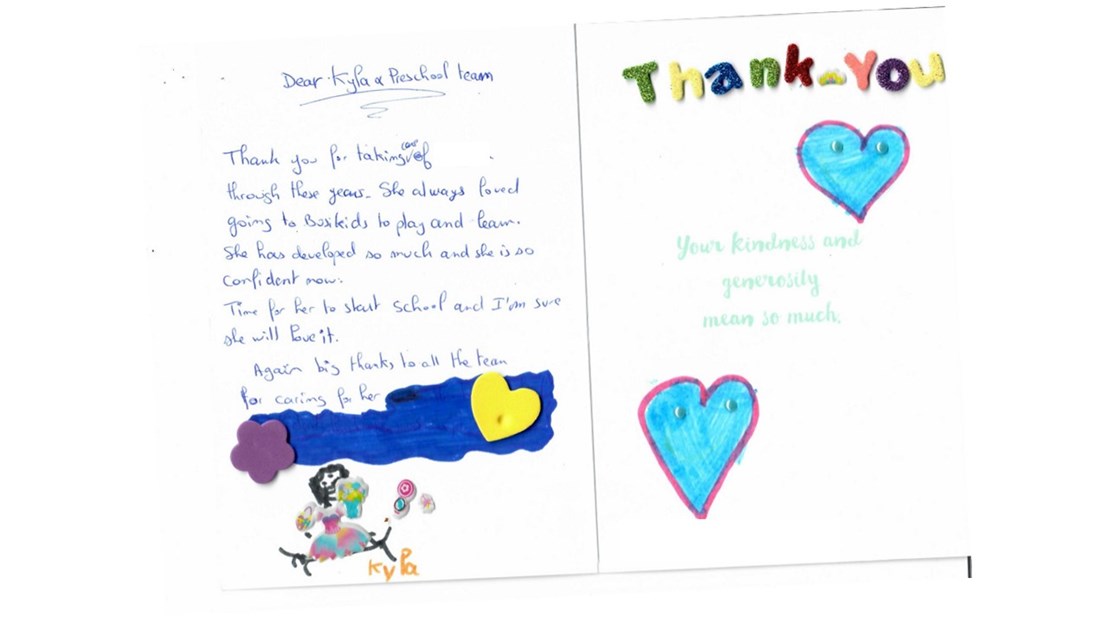 Dear Kyla & Preschool team
Thank you for taking care of
through these years. She always loved
going to Busikids to play and learn.
She has developed so much and she is so
confident now.
Time for her to start school and I'm sure
she will love it.
Again big thanks to all the team
for caring for her
Kyla
Thank You
Your kindness and
generosity
mean so much.